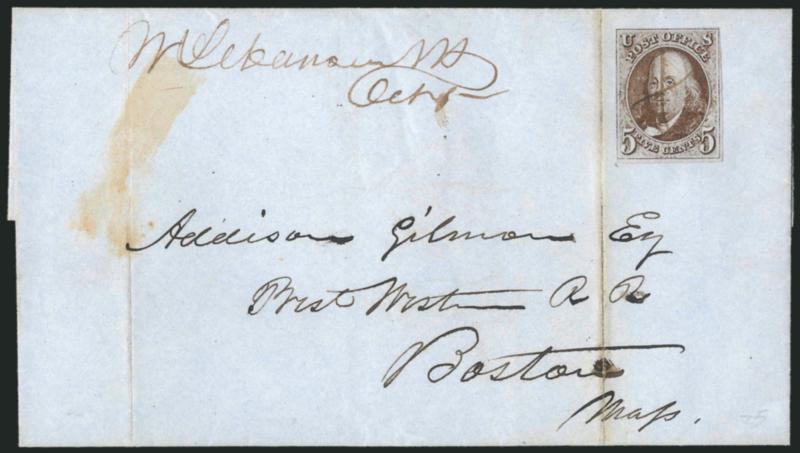 W Lebanon NH
Oct 5
U S
POST OFFICE
5 5
FIVE CENTS
Addison Gilmore Esq
Prest Western R R
Boston
Mass.